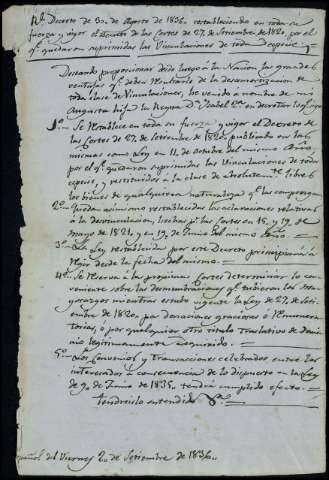 Rl. Decreto de 30 de Agosto de 1836 restableciendo en toda su
fuerza y vigor el decreto de las Cortes de 27 de Setiembre de 1820, por el
ql. quedaron suprimidas las Vinculaciones de toda especie.
Deseando proporcionar desde luego á la Nacion las grandes
ventajas ql. deben resultarle de la desamortizacion de
toda clase de Vinculaciones, he venido á nombre de mi
Augusta hija la Reyna Dª. Isabel 2ª. en decretar lo sigte.
1º. Se restablece en toda su fuerza y vigor el decreto de
las Cortes de 27 de Setiembre de 1820 publicado en las
mismas como Ley en 11 de Octubre del mismo Año,
por el ql. quedaron suprimidas las Vinculaciones de toda
especie, y restituidos á la clase de absolutamte. libres
los bienes de qualquiera naturaleza ql. las compongan
2º. Quedan asimismo restablecidas las aclaraciones relativas
á la desvinculacion, hechas pr. las Cortes en 15, y 19 de
Mayo de 1821, y en 19 de Junio del mismo Año.
3º. La Ley restablecida por este Decreto principiará á
regir desde la fecha del mismo.
4º. Se reserva á las proximas Cortes determinar lo con
veniente sobre las desmembraciones ql. tubieron los Ma
yorazgos mientras estubo vigente la Ley de 27 de Seti-
embre de 1820, por donaciones graciosas ó remunera-
torias, ó por qualquier otro titulo traslativo de domi-
nio legitimamente adquirido.
5º. Los Convenios y Transacciones celebrados entre los
interesados á consecuencia de lo dispuesto en la Ley
de 9 de Junio de 1835, tendrá cumplido efecto.
Tendreislo entendido &ª.
pañol del Viernes 2 de Setiembre de 1836.